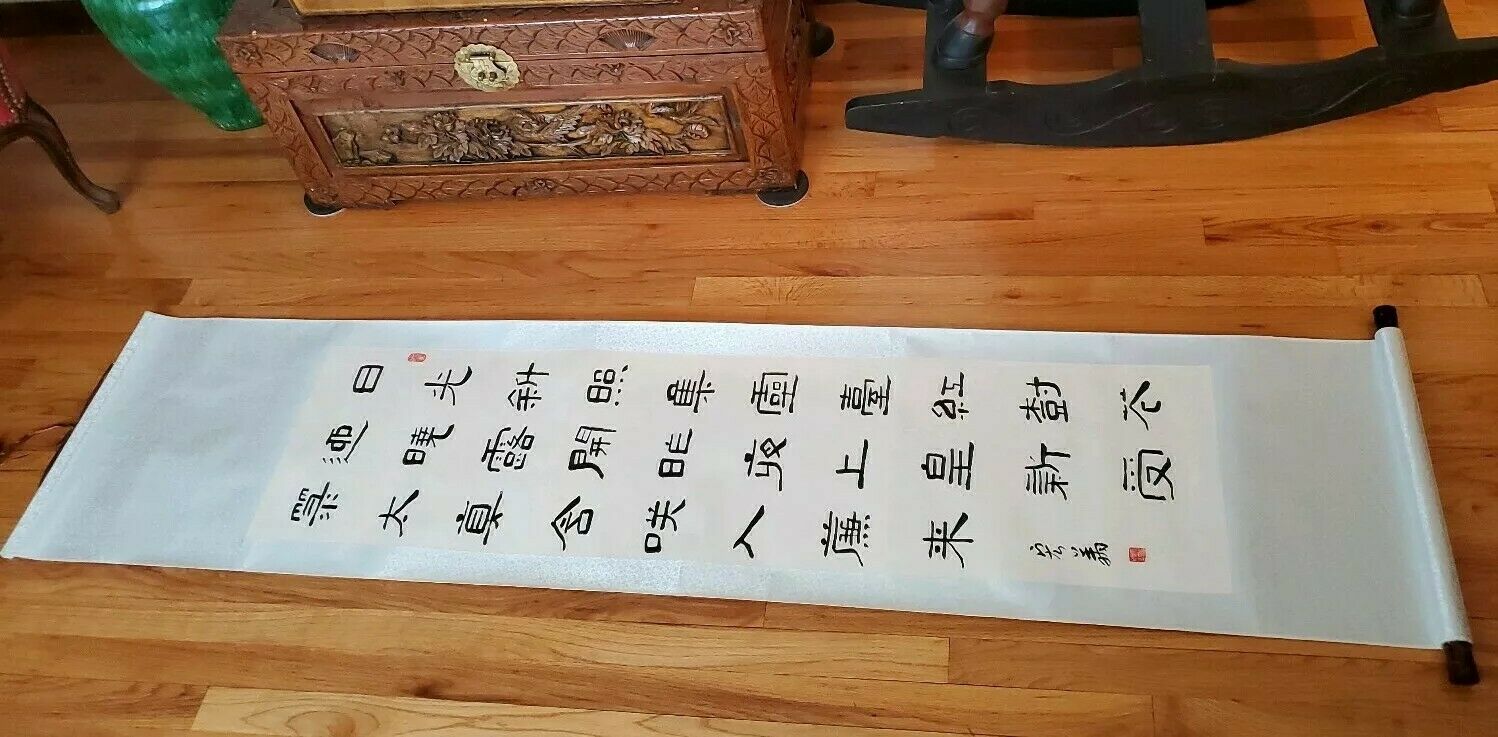 日光斜照集靈臺紅樹花
迎曉露開昨夜上皇新受
籙太真含咲入簾来